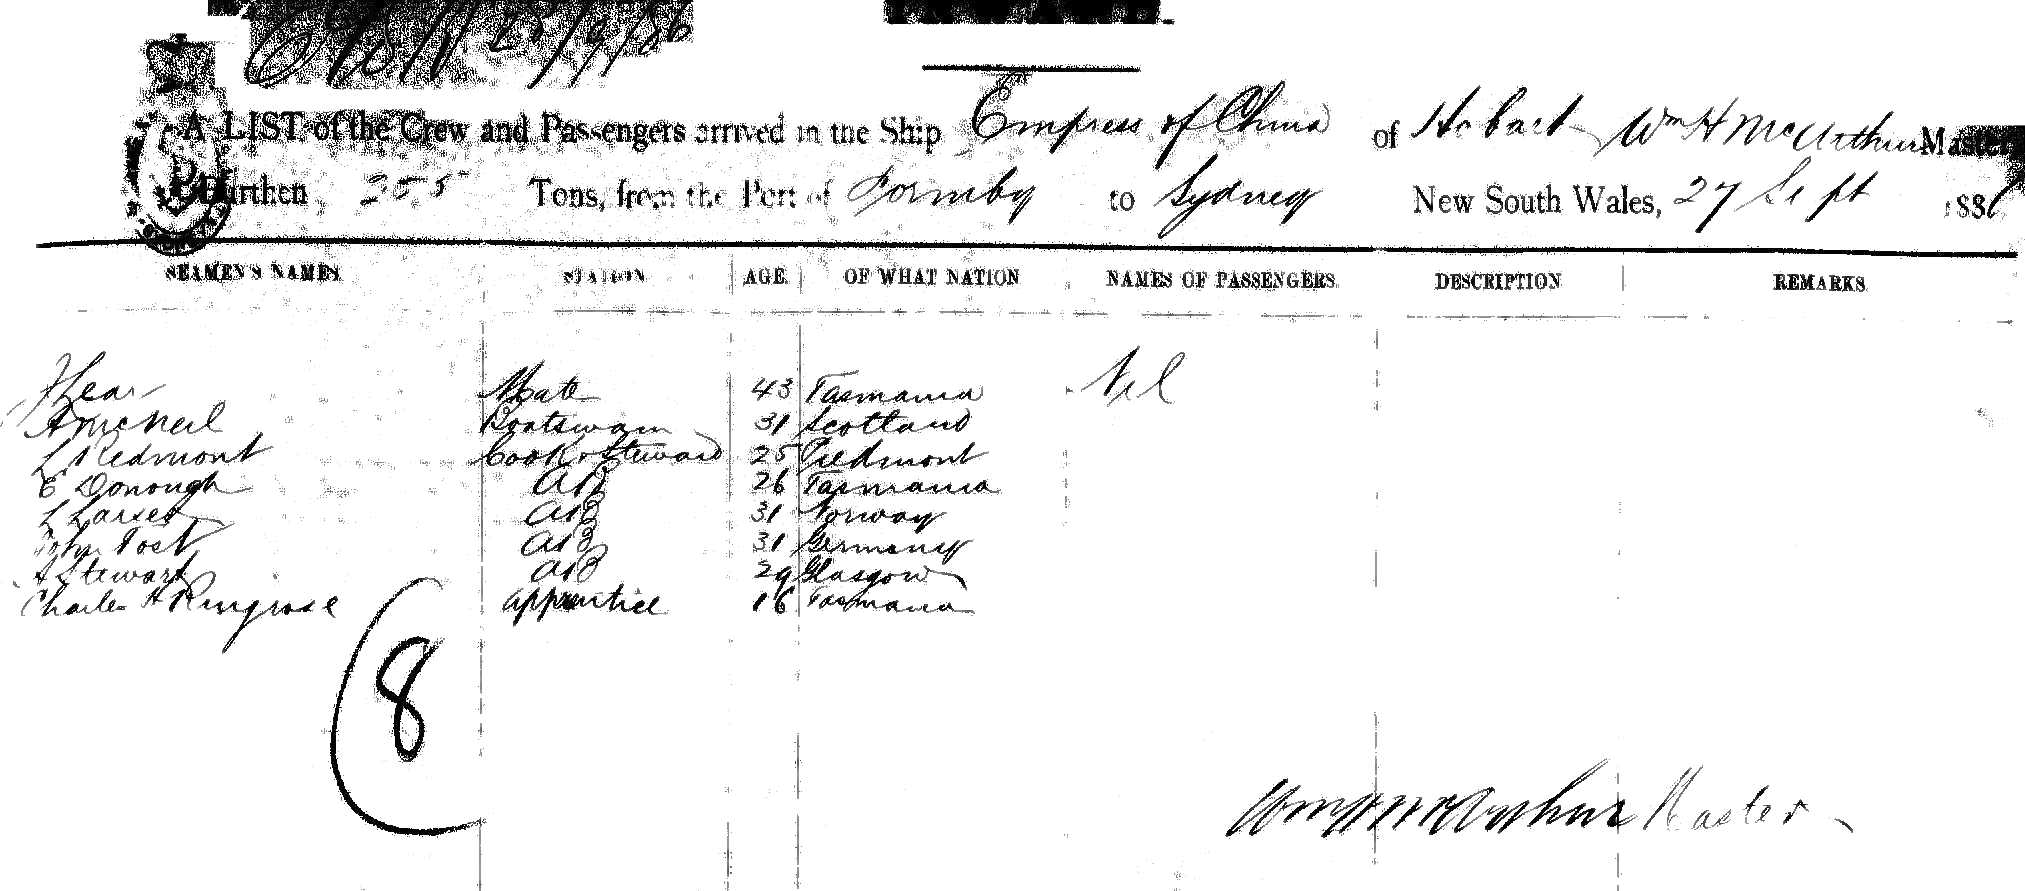 28/9/86
A LIST of the Crew and Passengers arrived in the Ship Empress of China of Hobart Wm H McArthur Master,
Burthen 255 Tons, from the Port of Formby to Sydney New South Wales, 27 Sept 1886
SEAMEN'S NAMES STATION AGE OF WHAT NATION NAMES OF PASSENGERS DESCRIPTION REMARKS
Mate 43 Tasmania Nil
A McNeil Boatswain 31 Scotland
L Piedmont Cook & Steward 25 Piedmont
E Donough AB 26 Tasmania
L Larsen AB 31 Norway
John Tost AB 31 Germany
A Stewart AB 29 Glasgow
Charles H Ringrose apprentice 16 Tasmania
8
Wm H McArthur Master